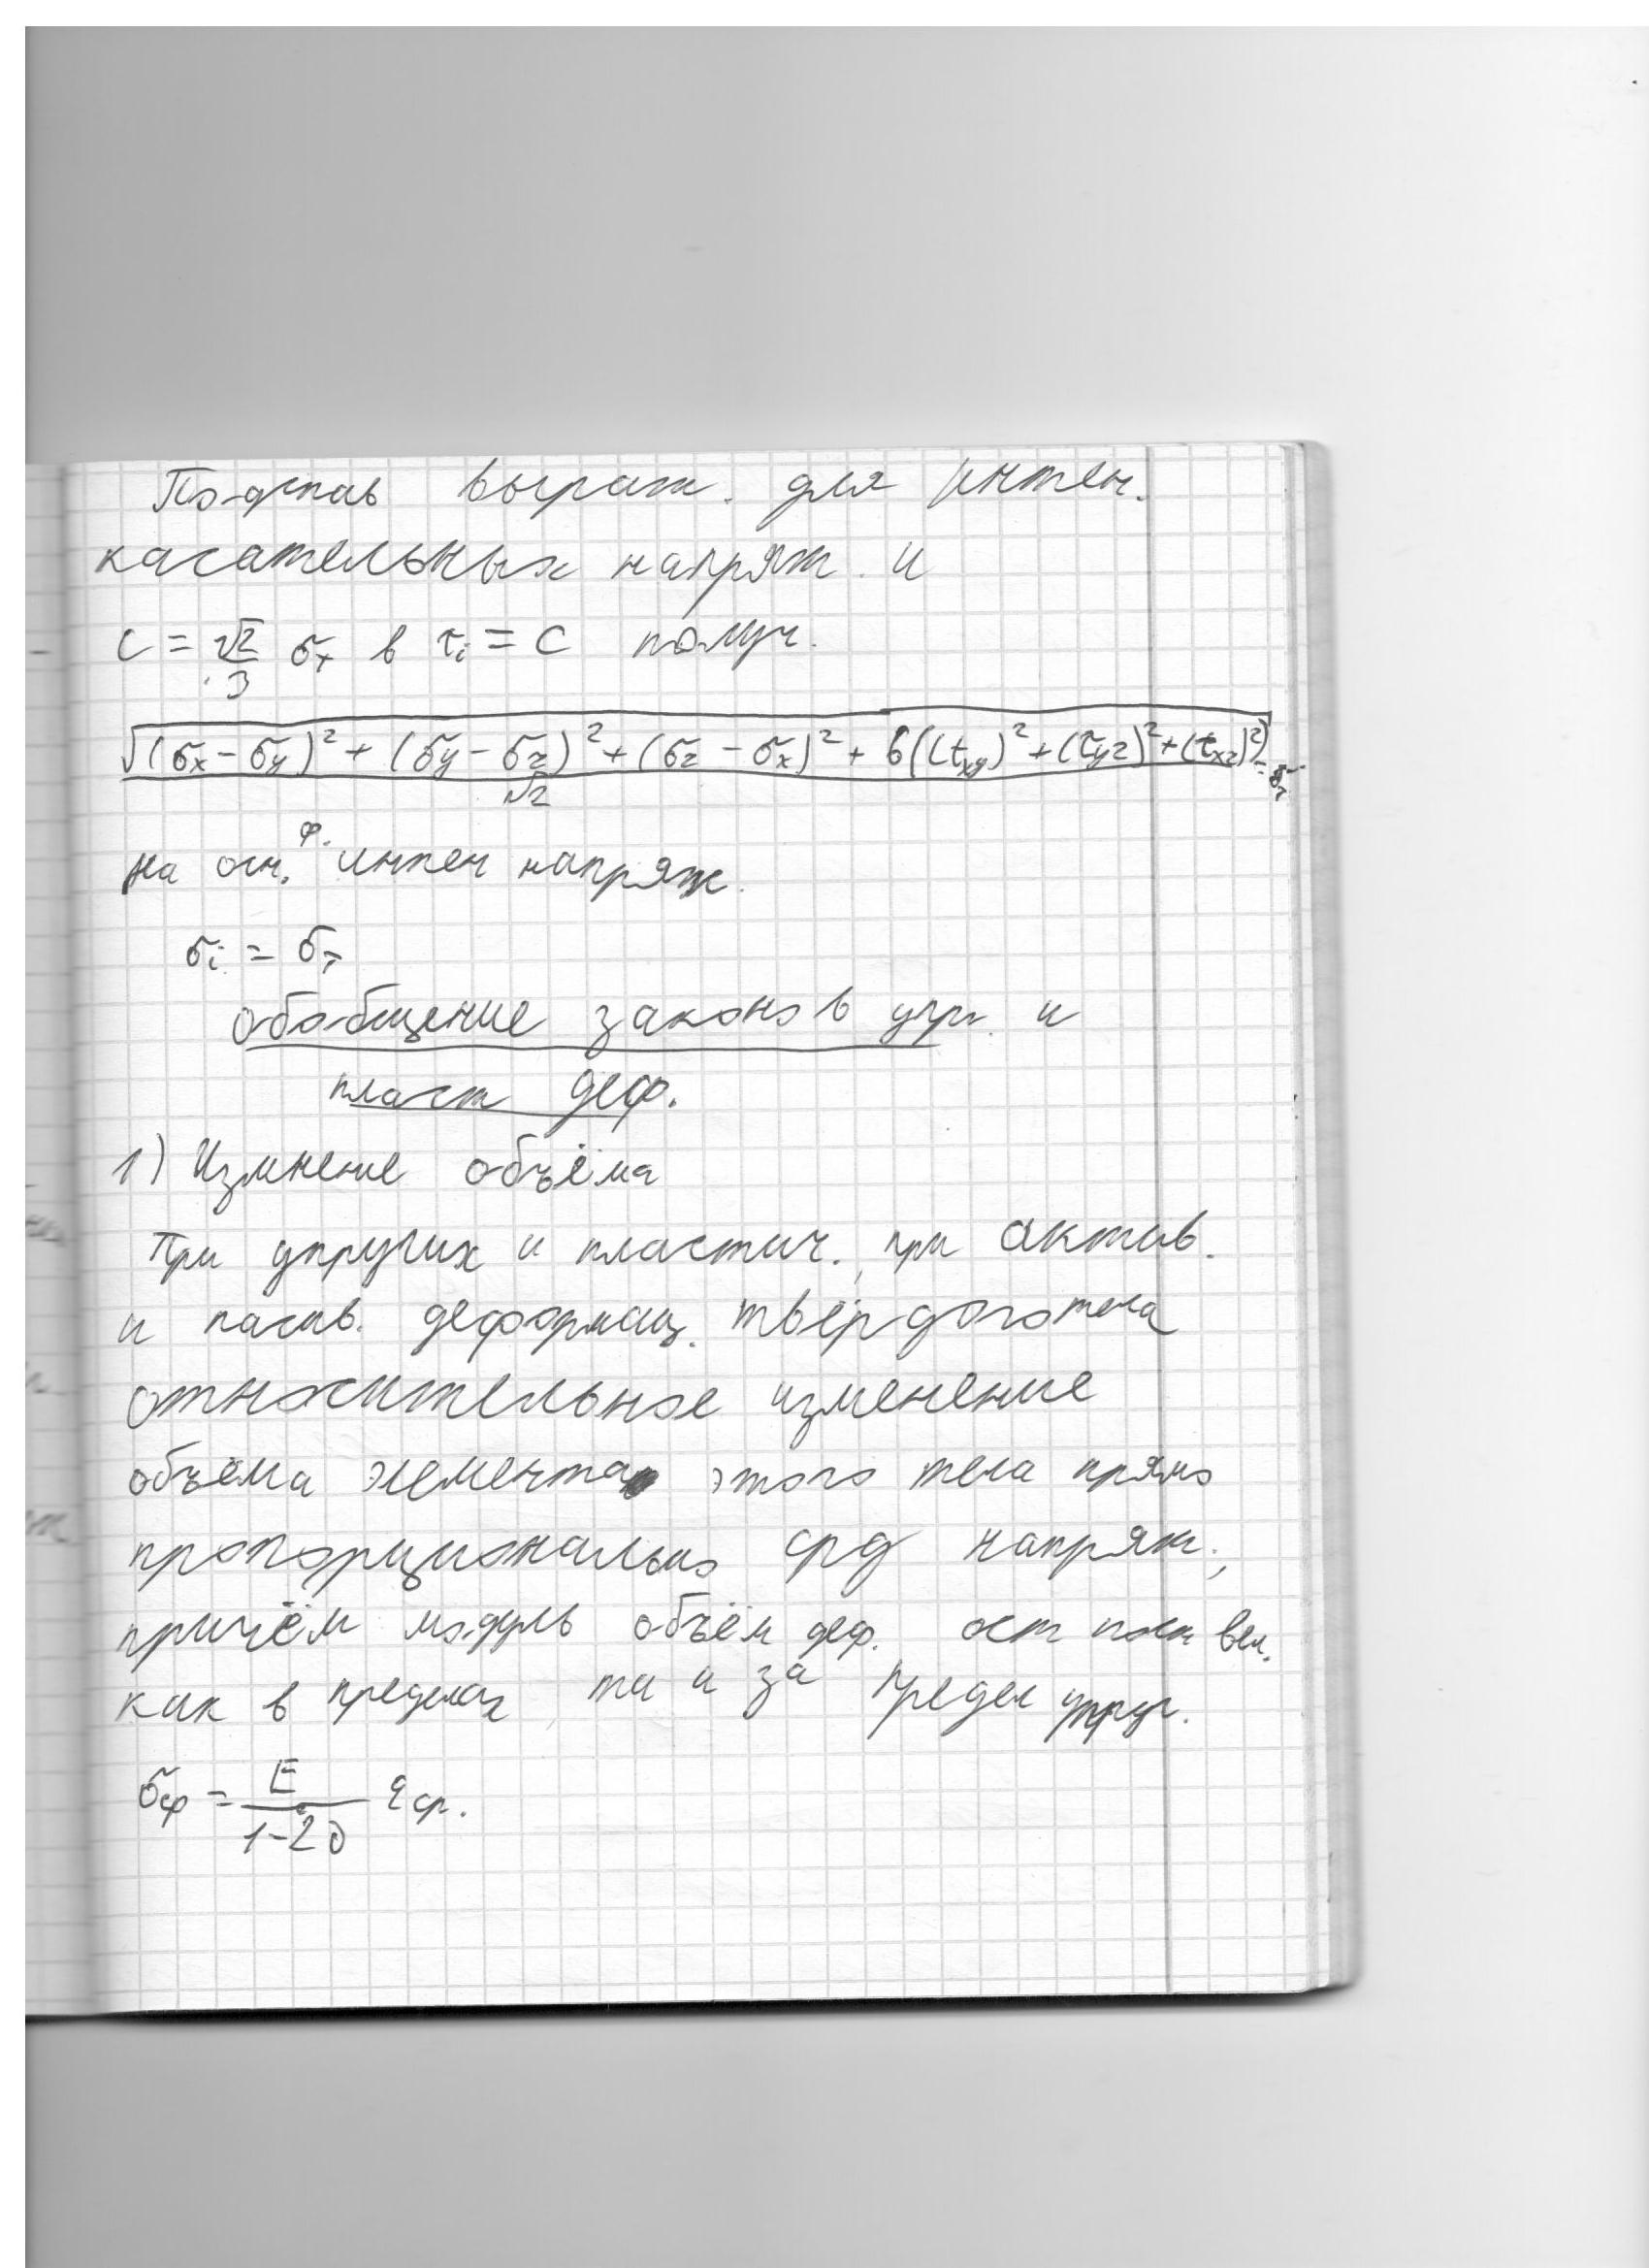 Подстав выраж. для интен.
касательных напряж. и
C = √2/3 σт в τi = C получ.
√((σx - σy)² + (σy - σz)² + (σz - σx)² + 6((τxy)² + (τyz)² + (τxz)²)) / √2 = σт
на осн. ф. интен напряж.
σi = σт
обобщение законов упр. и
пласт деф.
1) Измнение объёма
При упругих и пластич., при актив.
и пасив. деформац. твёрдого тела
относительное изменение
объёма элемента этого тела прямо
пропорционально срд напряж.,
причём модуль объём деф. ост пост вел.
как в пределах, та и за предел упруг.
σср = E/(1-2υ) εср.